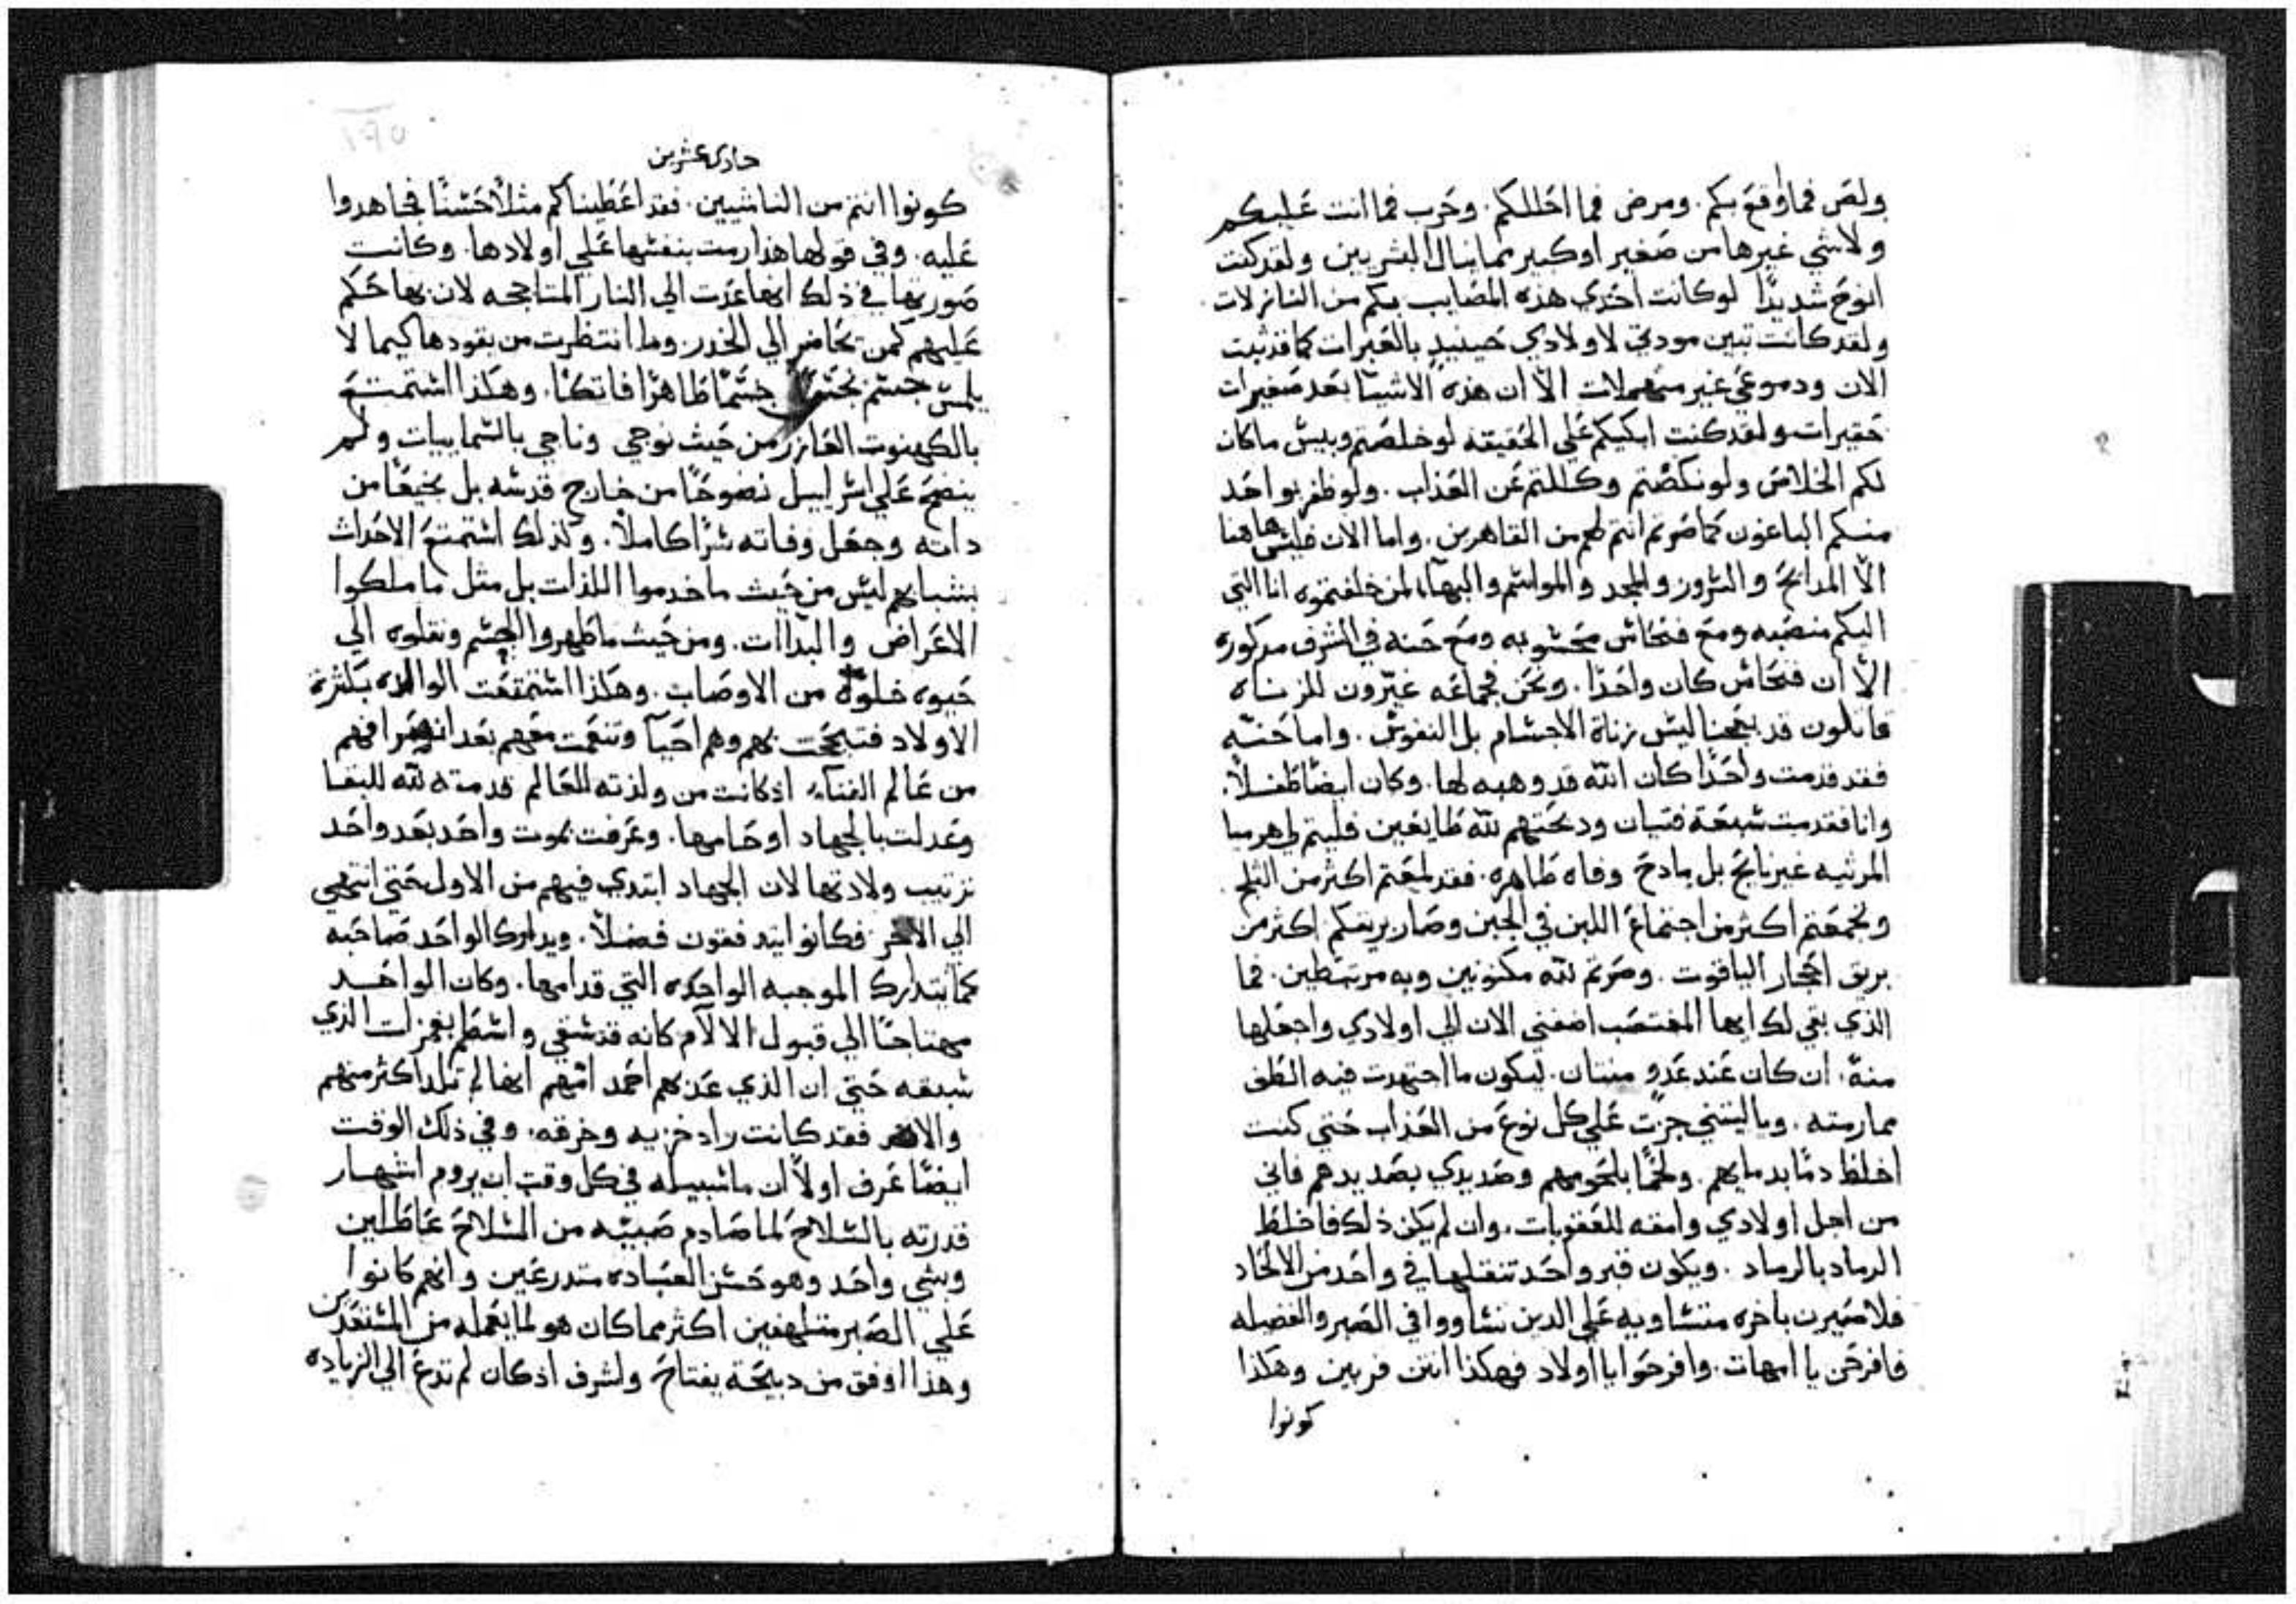 ولص فما وقع بكم. ومرض فما احللكم. وحرب فما انت عليكم
ولا شي غيرها من صغير او كبير مما ينال البشريين ولقد كنت
انوح شديدًا لو كانت احدي هذه المصايب بكم من النازلات
ولقد كانت تبين مودتي لاولادي حينيدٍ بالعبرات كما قد ثبت
الان ودموعي غير منهملات الّا ان هذه الاشيا بعد صغيرات
حقيرات ولقد كنت ابكيكم علي الحقيقه لو خلصتم وبيس ما كان
لكم الخلاص ولو نكصتم وكللتم عن العذاب. ولو ظفر بواحد
منكم الباغون كما صرتم انتم لهم من القاهرين. واما الان فليس هاهنا
الّا المدايح والسرور والمجد والمواسم والبهآ، لمن خلفتموه انا التي
اليكم منصبه ومع فنحاس محسوبه ومع حنه في الشرف مدكوره
الّا ان فنحاس كان واحدًا. ونحن فجماعه غيّرون للزناه
قاتلون قد بعجنا ليس زناة الاجسام بل النفوس. واما حنّه
فقد قدمت واحدًا كان الله قد وهبه لها. وكان ايضًا طفلًا.
وانا فقدمت سبعة فتيان ودبحتهم لله طايعين فليتم لي هرميا
المرثيه غير نايح بل مادح وفاه طاهره. فقد لمعتم اكثر من الثلج
وتجمعتم اكثر من اجتماع اللبن في الجبن وصار بريقكم اكثر من
بريق احجار الياقوت. وصرتم لله مكنونين وبه مرتبطين. فما
الذي بقي لك ايها المغتصب اضفني الان الي اولادي واجعلها
منةً. ان كان عند عدوٍ منتان. ليكون ما اجتهدت فيه الطف
ممارمته. وياليتني جزت علي كل نوع من العذاب حتي كنت
اخلط دمًا بدمايهم. ولحمًا بلحومهم وصديدي بصديدهم فاني
من اجل اولادي وامقه للعقوبات. وان لم يكن ذلك فاخلط
الرماد بالرماد. ويكون قبر واحد تنقلها في واحد من الالحاد
فلا تضرن باخره متساويه علي الدين تساووا في الصبر والفضيله
فافرحن يا امهات. وافرحوا يا اولاد فهكذا انتن فربين وهكذا
كونوا
حادي عشرين
كونوا انتم من الناشيين. فقد اعطيناكم مثلًا حسنًا فجاهدوا
عليه. وفي قولها هذا رمت بنفسها علي اولادها. وكانت
صورتها في ذلك انها عدت الي النار المتاججه لان بها حكم
عليهم كمن تحاضر الي الخدر. وما انتظرت من يقودها كيما لا
يلمس جسم نجس جسمًا طاهرًا فاتكًا. وهكذا استمتع
بالكهنوت العازر من حيث نوجي وناجي بالسماييات ولم
ينضح علي اسراييل نضوحًا من خارج قدسه بل نجيعًا من
داته وجعل وفاته سرًا كاملًا. وكذلك استمتع الاحداث
بشبابهم ليس من حيث ما خدموا اللذات بل مثل ما ملكوا
الاعراض والبداات. ومن حيث ما طهروا الجسم ونقلوه الي
حيوه خلوّه من الاوصاب. وهكذا استمتعت الوالده بكثرة
الاولاد فتبجحت بهم وهم احيآ وتنعمت معهم بعد انصرافهم
من عالم الفنآء اذ كانت من ولدته للعالم قدمته لله للبقا
وعدلت بالجهاد اوحامها. وعرفت بموت واحد بعد واحد
ترتيب ولادتها لان الجهاد ابتدي فيهم من الاول حتي انتهي
الي الاخر فكانوا يتدفقون فضلًا. ويدارك الواحد صاحبه
كما تتدارك الموجبه الواحده التي قدامها. وكان الواحد
مهتاجًا الي قبول الالآم كانه قد سقي واسطم بغمزات الذي
سبقه حتي ان الذي عذبهم احمد امهم انها لم تلد اكثر منهم
والا فقد كانت زاد خزيه وخرقه. وفي ذلك الوقت
ايضًا عرف اولًا ان ما سبيله في كل وقت ان يروم اشهار
قدرته بالسلاح لما صادم صبيته من السلاح عاطلين
وبشي واحد وهو حسن العباده متدرعين وانهم كانوا
علي الصبر متلهفين اكثر مما كان هو لما يعمله من المستعدين
وهذا اوفق من دبيحة يفتاح واشرف اذ كان لم تدع الي الزياده